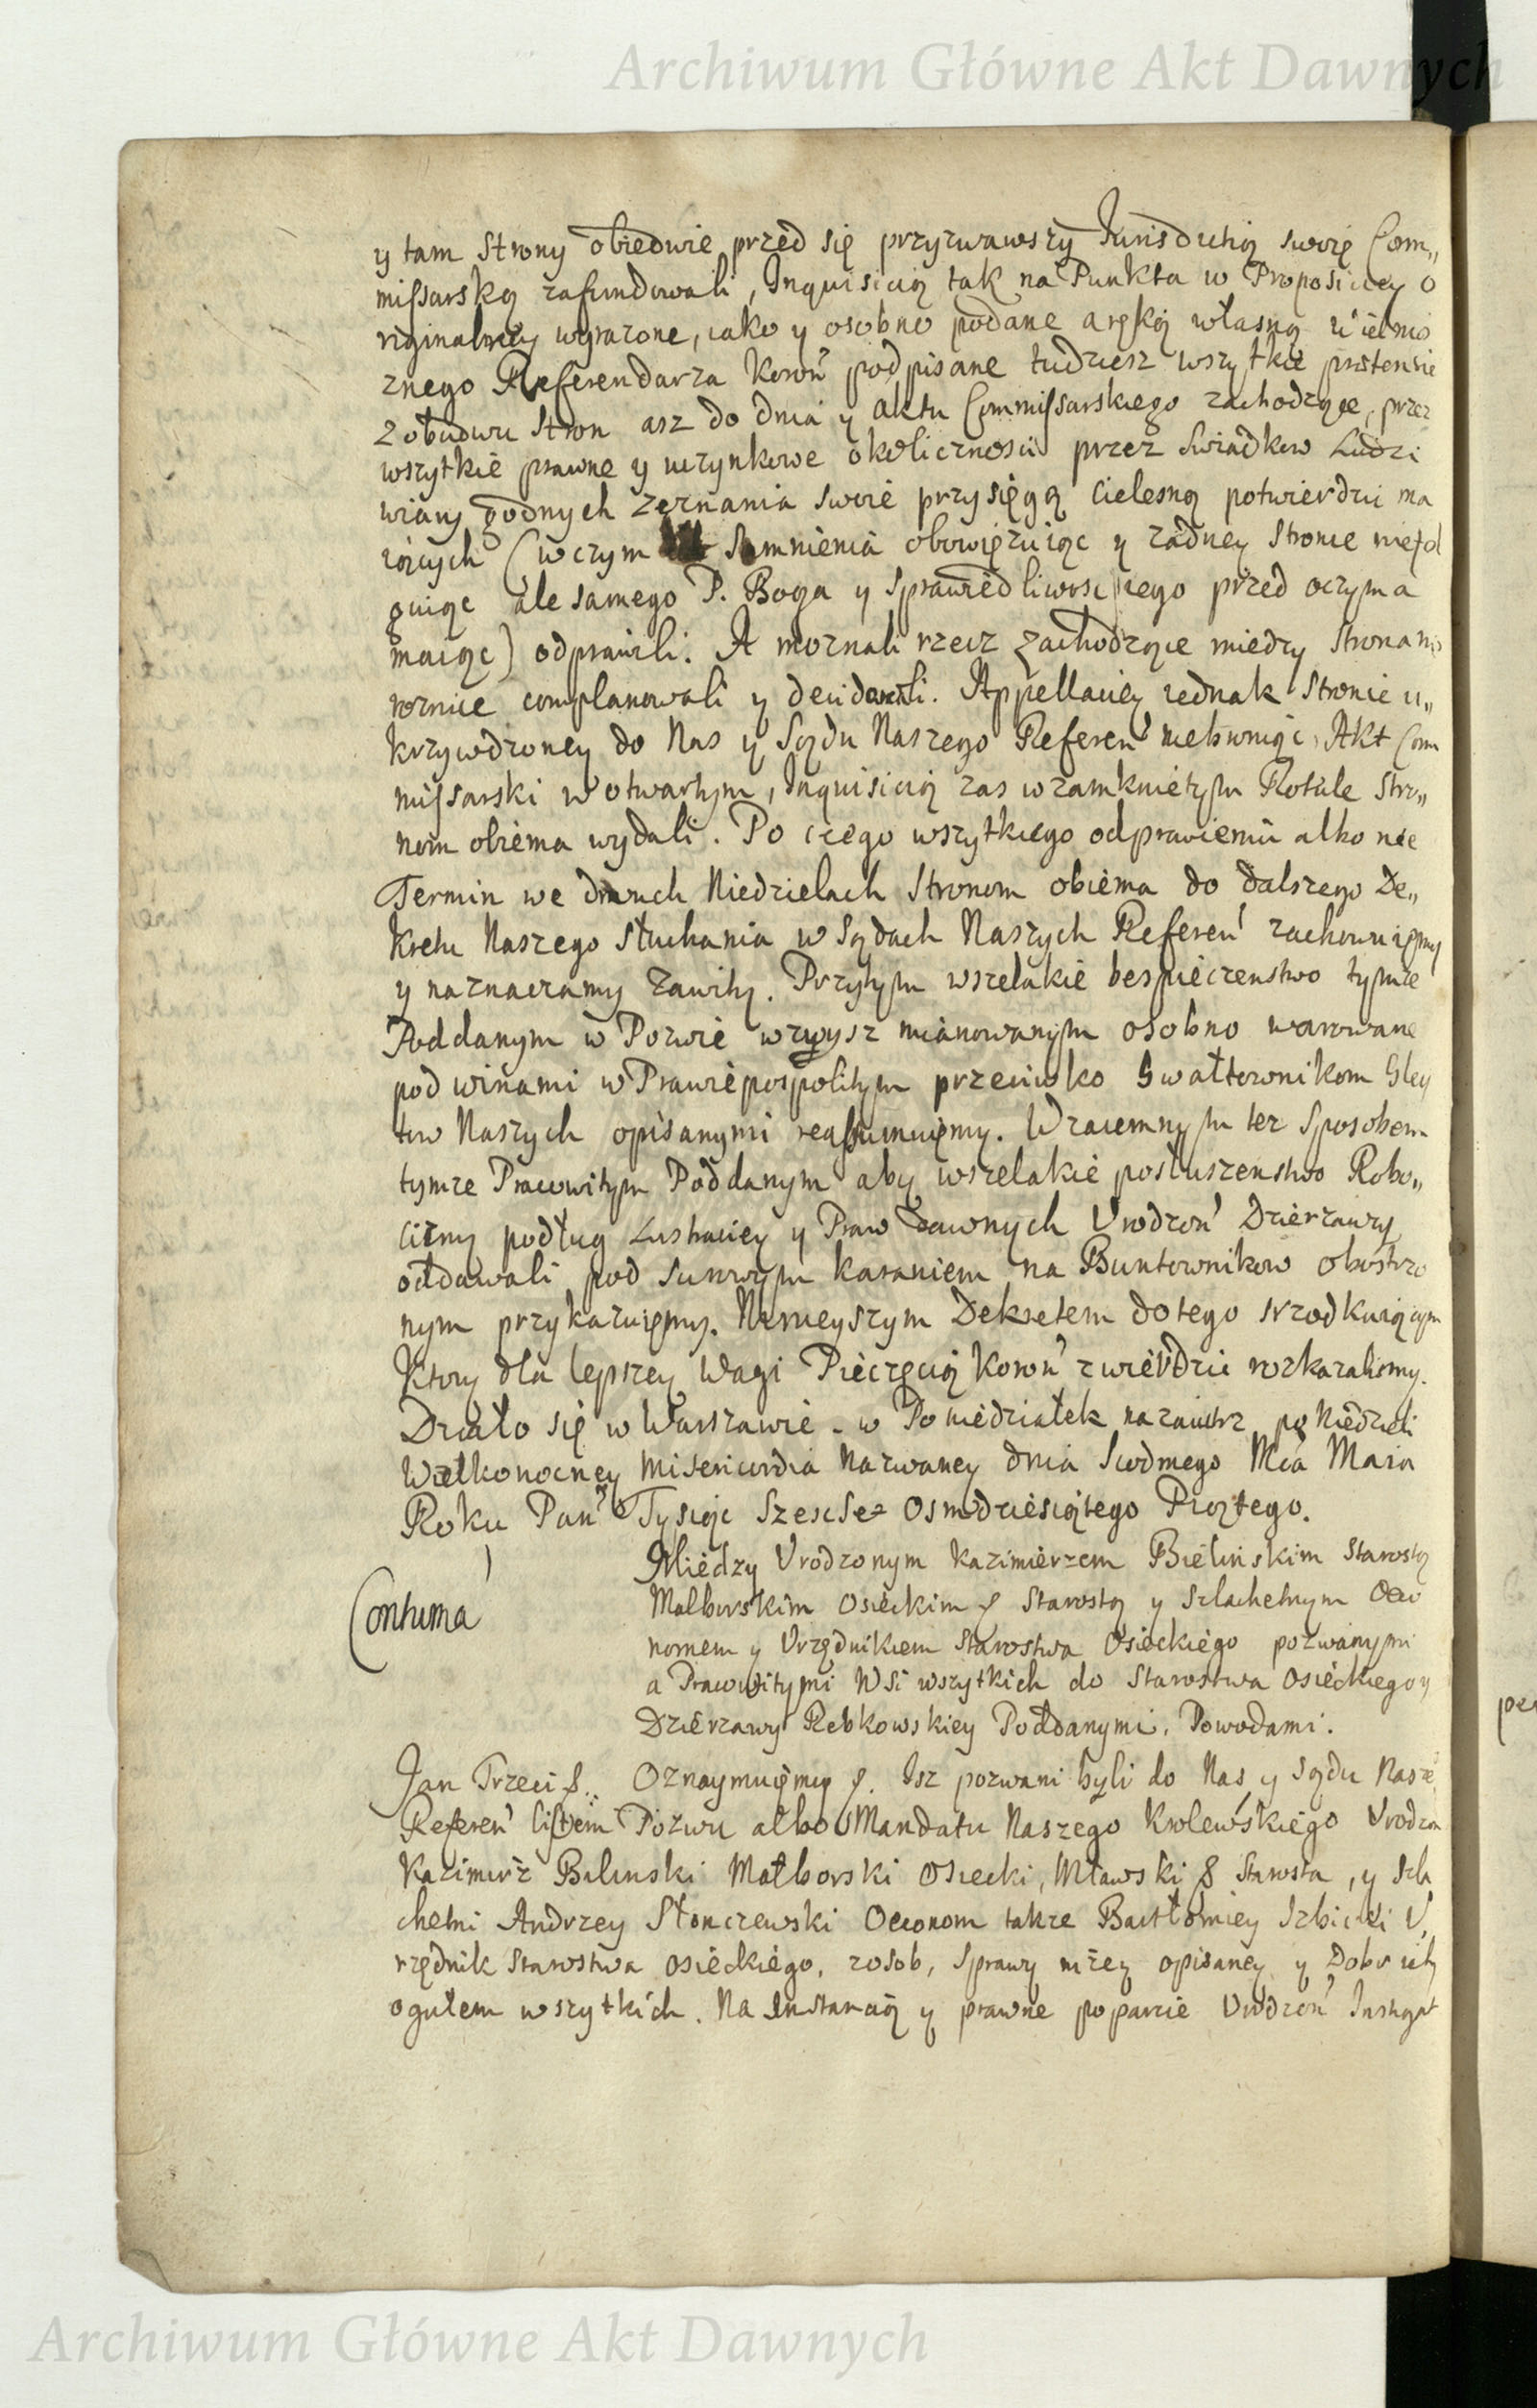 Archiwum Główne Akt Dawnych
y tam Strony obiedwie przed się przyzwawszy Jurisdictią swoię Com„
missarską zafundowali, Inquisicią tak na Punkta w Proposiciey o
riginalney wyrazone, iako y osobno podane a ręką własną Wielmo
znego Referendarza Koroń podpisane tudziesz wszytkie praetensie
z obudwu Stron asz do dnia y aktu Commissarskiego zachodzące, przez
wszytkie prawne y uczynkowe okolicznosci przez Swiadkow Ludzi
wiary godnych Zeznania swoie przysięgą cielesną potwierdzic ma
iących (w czym Sumnienia obowięzuiąc y zadney Stronie nie fol
guiąc ale samego P. Boga y Sprawiedliwosc iego przed oczyma
maiąc) odprawili. A moznali rzecz zachodzące miedzy Stronami
roznice complanowali y decidowali. Appellaciey iednak Stronie u„
krzywdzoney do Nas y Sądu Naszego Refereń niebroniąc, Akt Com
missarski w otwartym, Inquisicią zas w zamknietym Rotule Stro„
nom obiema wydali. Po czego wszytkiego odprawieniu albo nie
Termin we dwuch Niedzielach Stronom obiema do dalszego De„
kretu Naszego słuchania w Sądach Naszych Refereń zachowuięmy
y naznaczamy Zawity. Przytym wszelakie bespieczenstwo tymze
Poddanym w Pozwie wzwysz mianowanym osobno warowane
pod winami w Prawie pospolitym przeciwko Gwałtownikom Gley
tow Naszych opisanymi reassumuięmy. Wzaiemnym tez Sposobem
tymze Pracowitym Poddanym aby wszelakie posłuszenstwo Robo„
cizny podług Lustraciey y Praw dawnych Urodzoń Dzierzawcy
oddawali pod surowym karaniem na Buntownikow obostrzo
nym przykazuięmy. Ninieyszym Dekretem do tego srzodkuiącym
Ktory dla lepszey Wagi Pieczęcią Koroń zwierdzic rozkazalismy.
Działo się w Warszawie w Poniedziałek nazaiutrz po Niedzieli
Wielkonocney Misericordia Nazwaney dnia Siodmego Mca Maia
Roku Pań Tysiąc Szescset Osmdziesiątego Piątego.
Między Urodzonym Kazimierzem Bielinskim Starostą
Malborskim Osieckim & Starostą y Szlachetnym Oeco
nomem y Urzędnikiem Starostwa Osieckiego pozwanymi
Contuma
a Pracowitymi Wsi wszytkich do Starostwa Osieckiego y
Dzierzawy Rebkowskiey Poddanymi. Powodami.
Jan Trzeci &.. Oznaymuięmy &. Isz pozwani byli do Nas y Sądu Nasze
Refereń listem Pozwu albo Mandatu Naszego Krolewskiego Urodzon
Kazimirz Bilinski Malborski Osiecki, Mławski & Starosta, y Szla
chetni Andrzey Słonczewski Oeconom takze Bartłomiey Izbicki U
rzędnik Starostwa Osieckiego, z osob, Sprawy nizey opisaney y Dobr ich
ogułem wszytkich. Na Instancią y prawne poparcie Urodzoń Instygat
Archiwum Główne Akt Dawnych